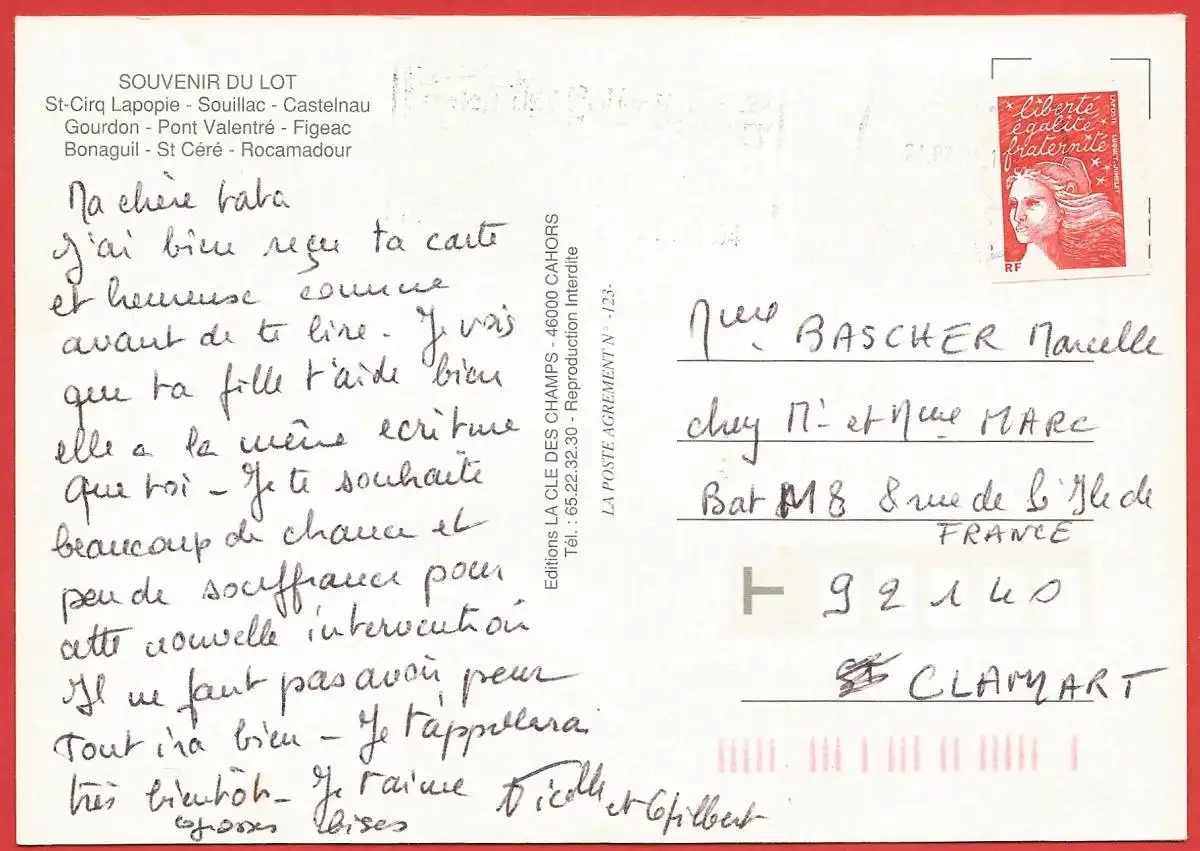 SOUVENIR DU LOT
St-Cirq Lapopie - Souillac - Castelnau
Gourdon - Pont Valentré - Figeac
Bonaguil - St Céré - Rocamadour
Ma chère tata
J'ai bien reçu ta carte
et heureuse comme
avant de te lire - Je vois
que ta fille t'aide bien
elle a la même ecriture
que toi - Je te souhaite
beaucoup de chance et
peu de souffrance pour
cette nouvelle intervention
Il ne faut pas avoir peur
Tout ira bien - Je t'appellerai
très bientôt - Je t'aime
Grosses bises
Nicolle et Gilbert
Editions LA CLE DES CHAMPS - 46000 CAHORS
Tél. : 65.22.32.30 - Reproduction Interdite
LA POSTE AGREMENT N° -123-
liberté
égalité
fraternité
LA POSTE LUQUET-JUMELET
RF
Mme BASCHER Marcelle
chez Mr et Mme MARC
Bat M8 8 rue de l'Ile de
FRANCE
T 92140
CLAMART